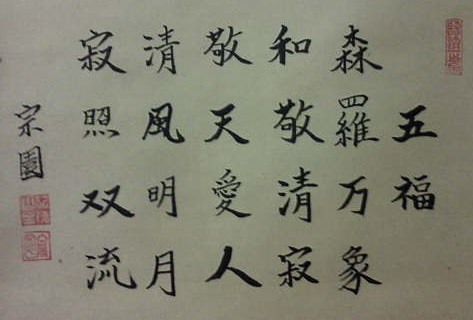 五福
森羅万象
和敬清寂
敬天愛人
清風明月
寂照双流
宗園